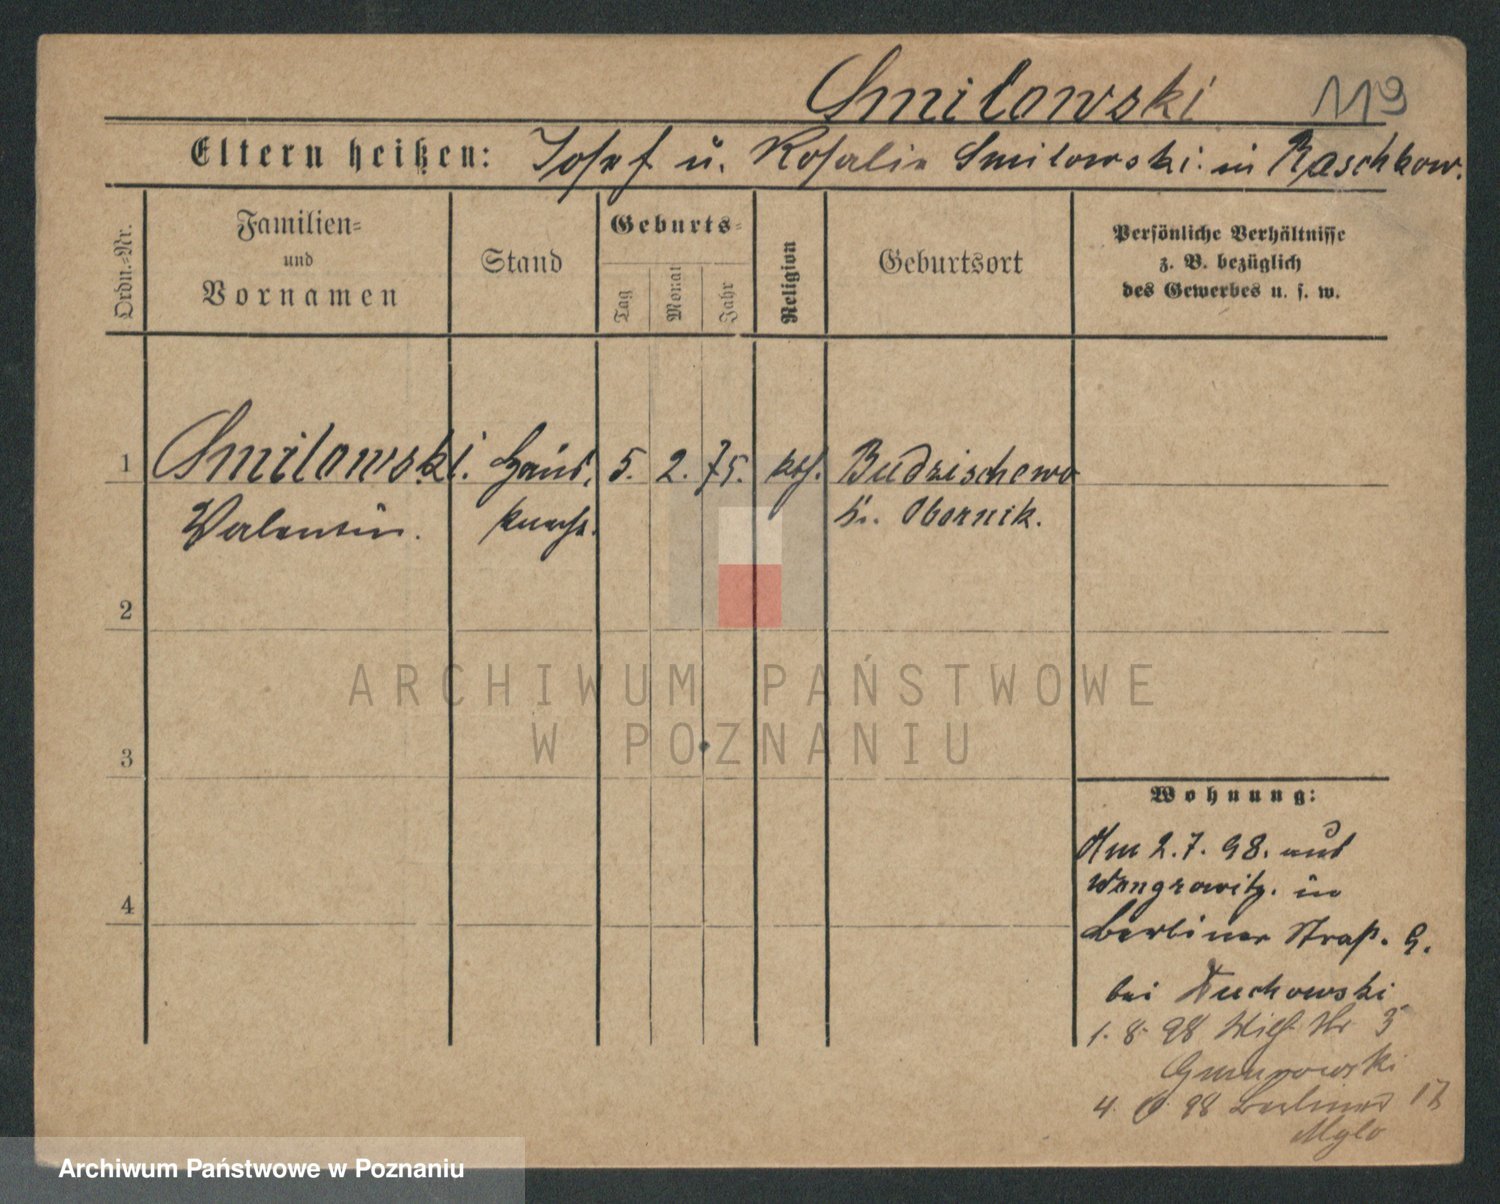 Smilowski 119
Eltern heißen: Josef u. Rosalie Smilowski in Raschkow.
Ordn.=Nr.
Familien=
und
Vornamen
Stand
Geburts=
Tag
Monat
Jahr
Religion
Geburtsort
Persönliche Verhältnisse
z. B. bezüglich
des Gewerbes u. s. w.
1 Smilowski. Haus, 5. 2. 75. kath. Budzischewo
Valentin. knecht. Kr. Obornik.
2
3
4
Wohnung:
Am 2.7.98. aus
Wongrowitz. in
Berliner Straß. 9.
bei Duchowski
1. 8. 98 Nr 3
4. 98 Berliner 17
Mylo
ARCHIWUM PAŃSTWOWE
W POZNANIU
Archiwum Państwowe w Poznaniu